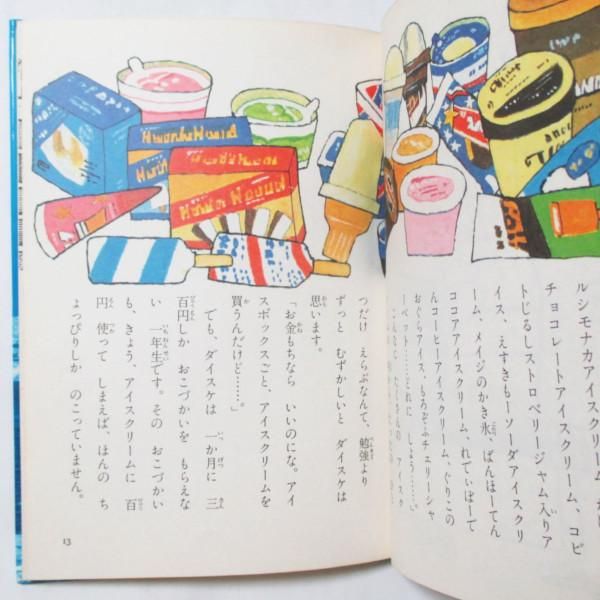 ルシモナカアイスクリーム、コピ
チョコレートアイスクリーム、
トじるしストロベリージャム入りア
イス、えすきもーソーダアイスクリ
ーム、メイジのかき氷、ばんほーてん
ココアアイスクリーム、れでぃぼーで
んコーヒーアイスクリーム、ぐりこの
おぐらアイス、もろぞふチェリーシャ
ーベット……どれに しよう……。」
こんな たくさんの アイスク
つだけ えらぶなんて、勉強より
ずっと むずかしいと ダイスケは
思います。
「お金もちなら いいのにな。アイ
スボックスごと、アイスクリームを
買うんだけど……。」
でも、ダイスケは 一か月に 三
百円しか おこづかいを もらえな
い 一年生です。その おこづかい
も、きょう、アイスクリームに 百
円 使って しまえば、ほんの ち
ょっぴりしか のこっていません。
13